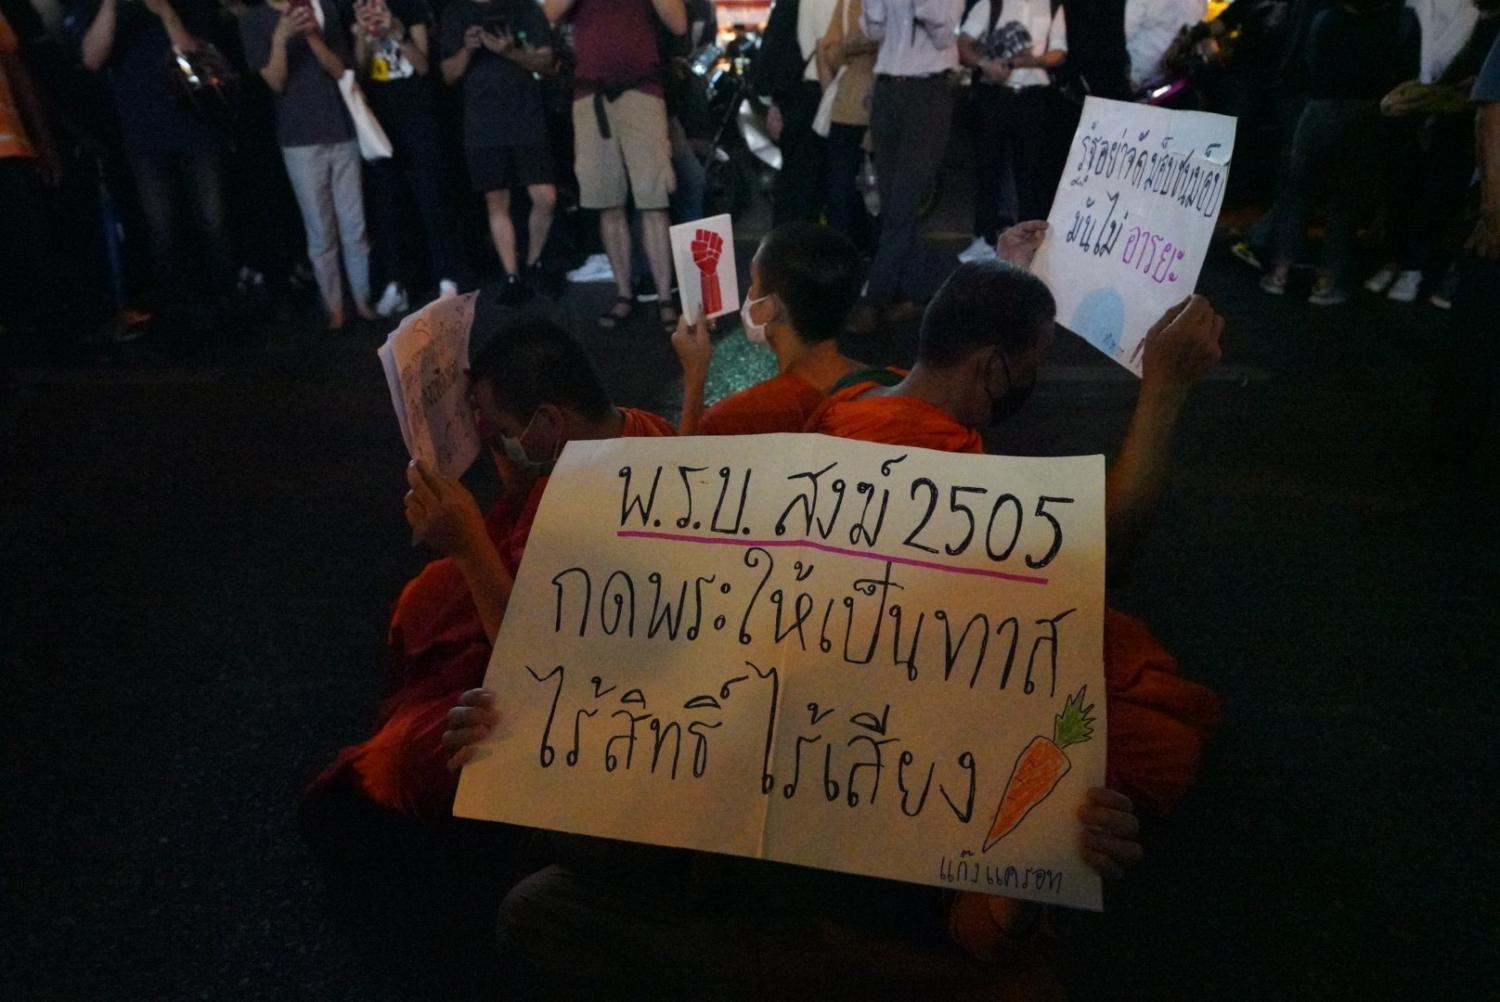 รัฐอย่าจุ้น
มันไม่ อารยะ
พ.ร.บ. สงฆ์ 2505
กดพระให้เป็นทาส
ไร้สิทธิ์ ไร้เสียง
แก๊งแครอท